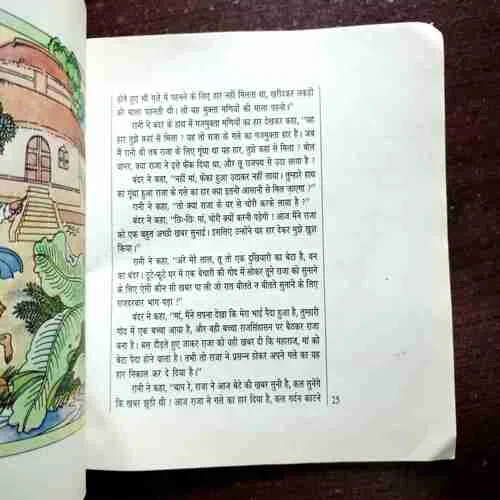 होते हुए भी गले में पहनने के लिए हार नहीं मिलता था, खरीदकर लकड़ी
की माला पहनती थी। तो यह मुक्ता मणियों की माला पहनी।"
रानी ने बंदर के हाथ में गजमुक्ता मणियों का हार देखकर कहा, "यह
हार तुझे कहां से मिला? यह तो राजा के गले का गजमुक्ता हार है। जब
मैं रानी थी तब राजा के लिए गूंथा था यह हार, तुझे कहां से मिला? बोल
वानर, क्या राजा ने इसे फेंक दिया था, और तू राजपथ से उठा लाया है?
बंदर ने कहा, "नहीं मां, फेंका हुआ उठाकर नहीं लाया। तुम्हारे हाथ
का गूंथा हुआ राजा के गले का हार क्या इतनी आसानी से मिल जाएगा?"
रानी ने कहा, "तो क्या राजा के घर से चोरी करके लाया है?"
बंदर ने कहा, "छिः-छिः मां, चोरी क्यों करनी पड़ेगी! आज मैंने राजा
को एक बहुत अच्छी खबर सुनाई। इसलिए उन्होंने यह हार देकर मुझे खुश
किया।"
रानी ने कहा, "अरे मेरे लाल, तू तो एक दुखियारी का बेटा है, वन
का बंदर। टूटे-फूटे घर में एक बेचारी की गोद में सोकर तूने राजा को सुनाने
के लिए ऐसी कौन सी खबर पा ली जो रात बीतते न बीतते सुनाने के लिए
राजदरबार भाग पड़ा!"
बंदर ने कहा, "मां, मैंने सपना देखा कि मेरा भाई पैदा हुआ है, तुम्हारी
गोद में एक बच्चा आया है, और वही बच्चा राजसिंहासन पर बैठकर राजा
बना है। बस दौड़ते हुए जाकर राजा को यही खबर दी कि महाराज, मां को
बेटा पैदा होने वाला है। तभी तो राजा ने प्रसन्न होकर अपने गले का यह
हार निकाल कर दे दिया है।"
रानी ने कहा, "बाप रे, राजा ने आज बेटे की खबर सुनी है, कल सुनेंगे
कि खबर झूठी थी! आज राजा ने गले का हार दिया है, कल गर्दन काटने
25